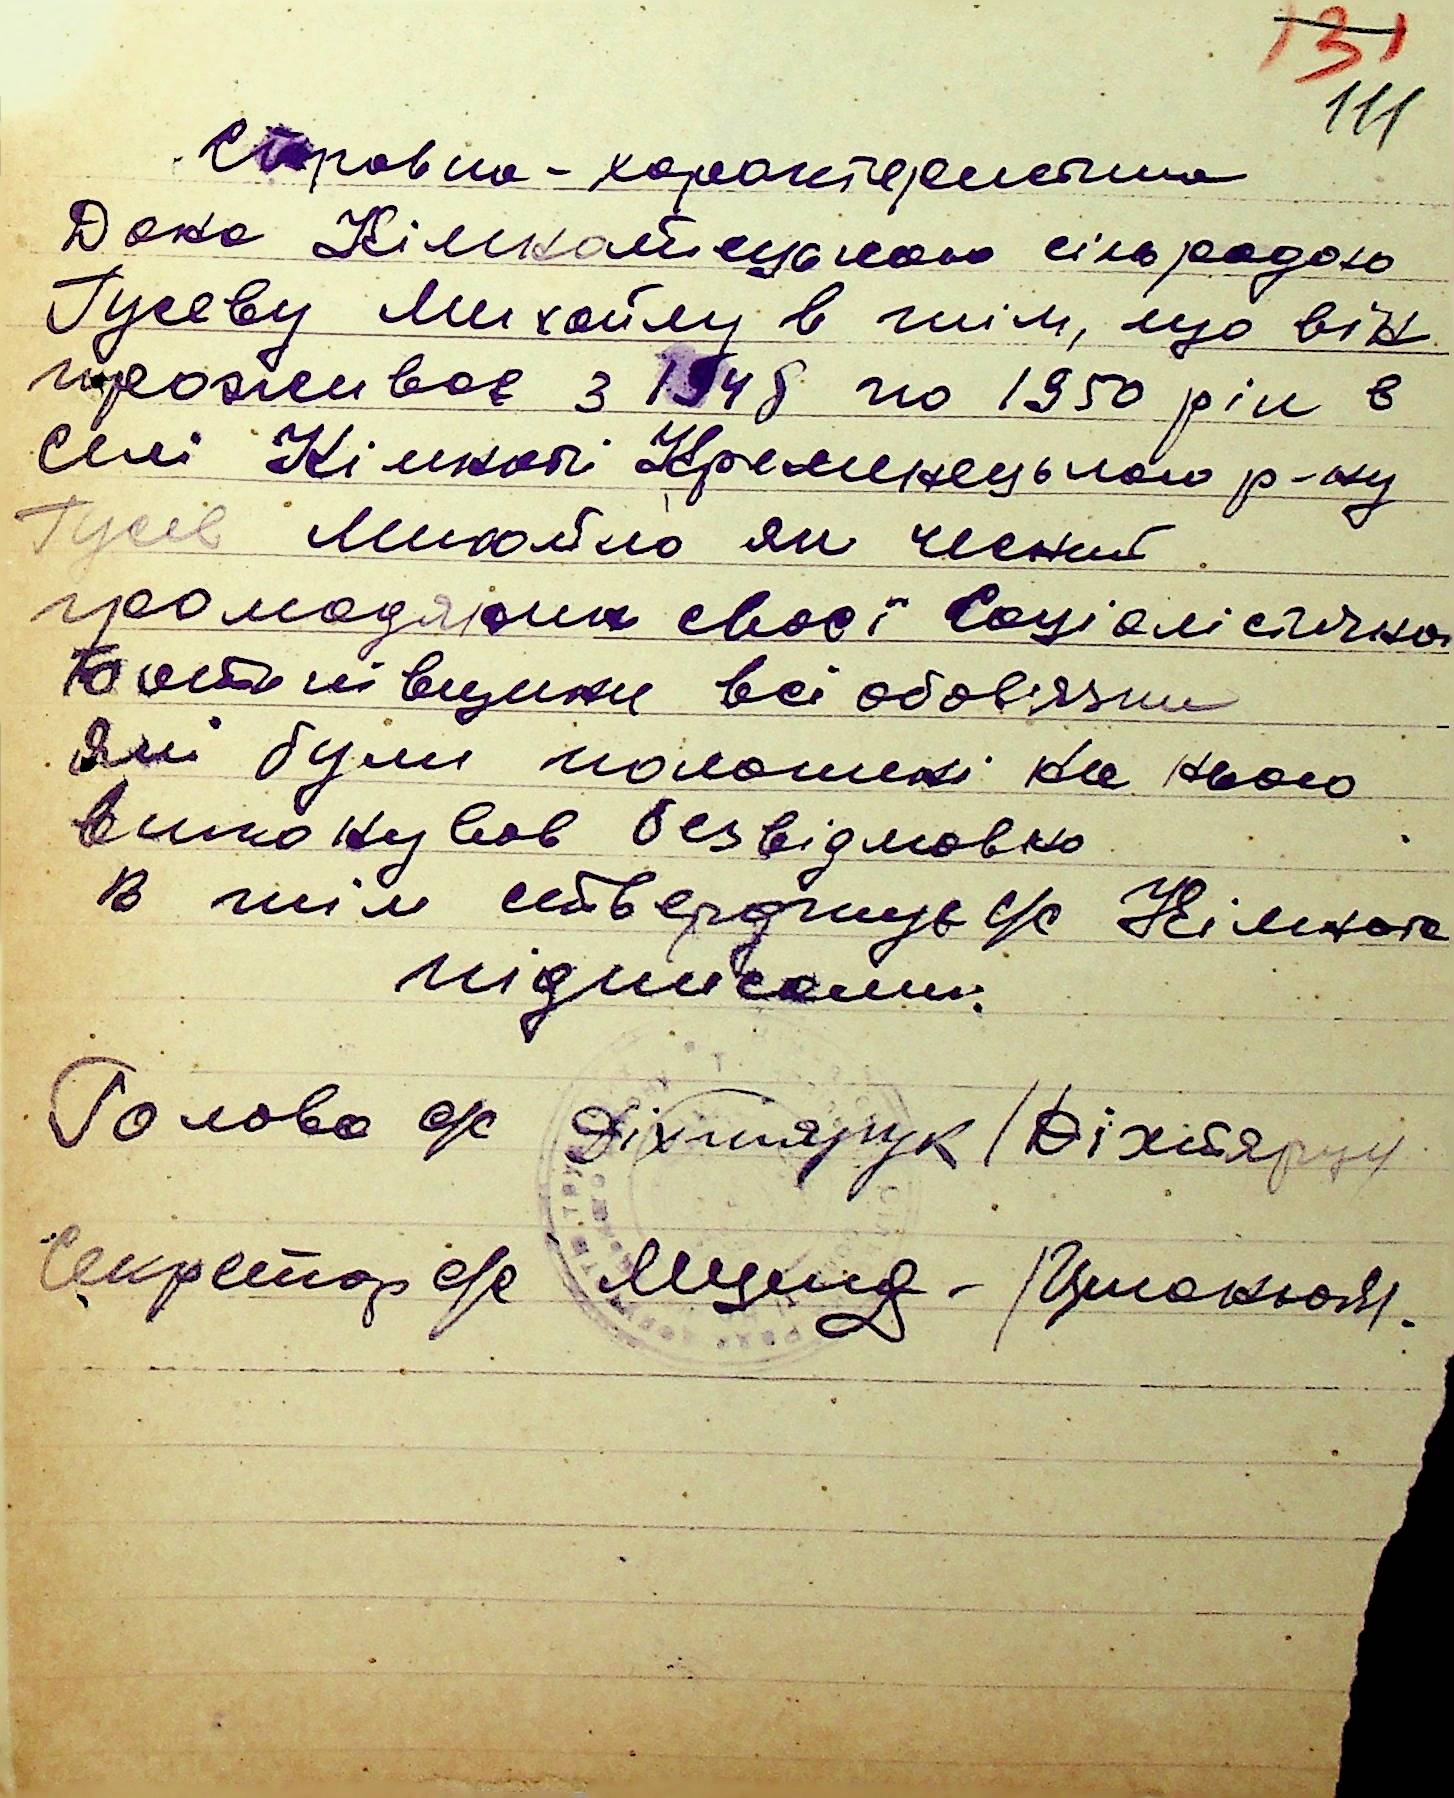 131
111
Справка - характеристика
Дана Кімнатецькою сільрадою
Гусеву Михайлу в тім, що він
проживає з 1946 по 1950 рік в
селі Кімнаті Кременецького р-ну
Гусев Михайло як чесний
громадянин своєї Соціалістичної
Батьківщини всі обов'язки
які були положені на нього
виконував безвідмовно
В тім стверджує с/р Кімната
підписами.
Голова с/р Діхтярук / Діхтярук
Секретар с/р